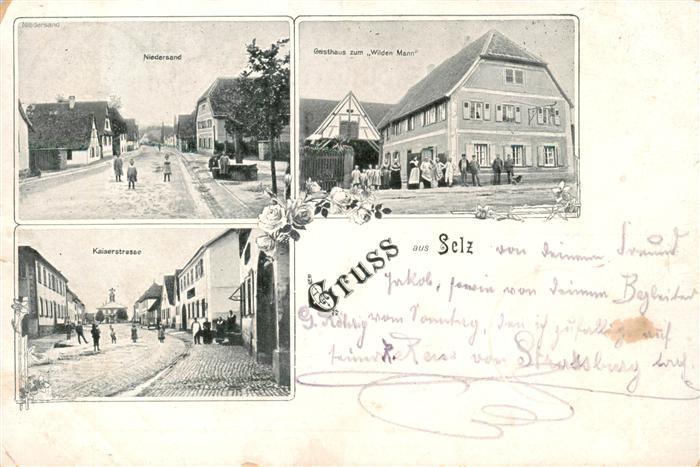 Niedersand
Niedersand
Gasthaus zum „Wilden Mann"
Kaiserstrasse
Gruss aus Selz
von deinem Freund
Jakob, sowie von deinem Begleiter
G. Röhrig vom Sonntag, den ich zufällig auf
seiner Reise von Strassburg traf